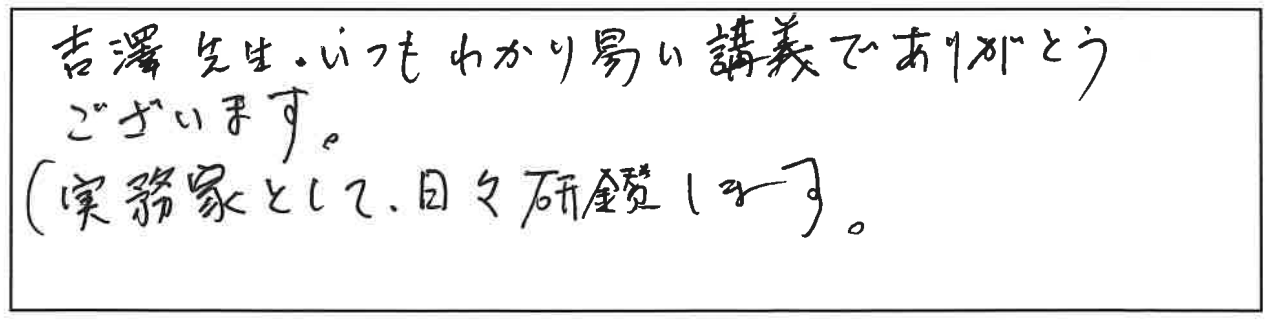 吉澤先生、いつもわかり易い講義でありがとう
ございます。
(実務家として、日々研鑽します。